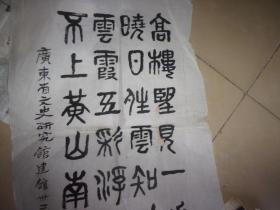 高樓望見一
曉日升雲知
雲霞五彩浮
不上黃山南
廣東省文史研究館建館卅